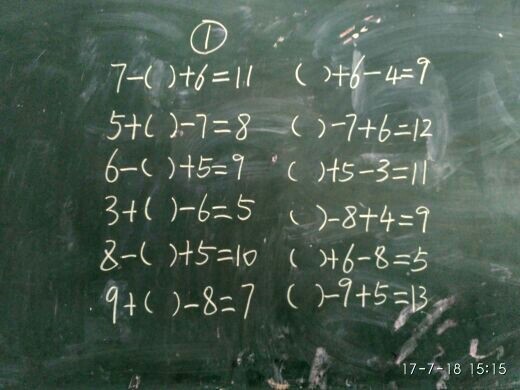 ①
7-( )+6=11 ( )+6-4=9
5+( )-7=8 ( )-7+6=12
6-( )+5=9 ( )+5-3=11
3+( )-6=5 ( )-8+4=9
8-( )+5=10 ( )+6-8=5
9+( )-8=7 ( )-9+5=13
17-7-18 15:15